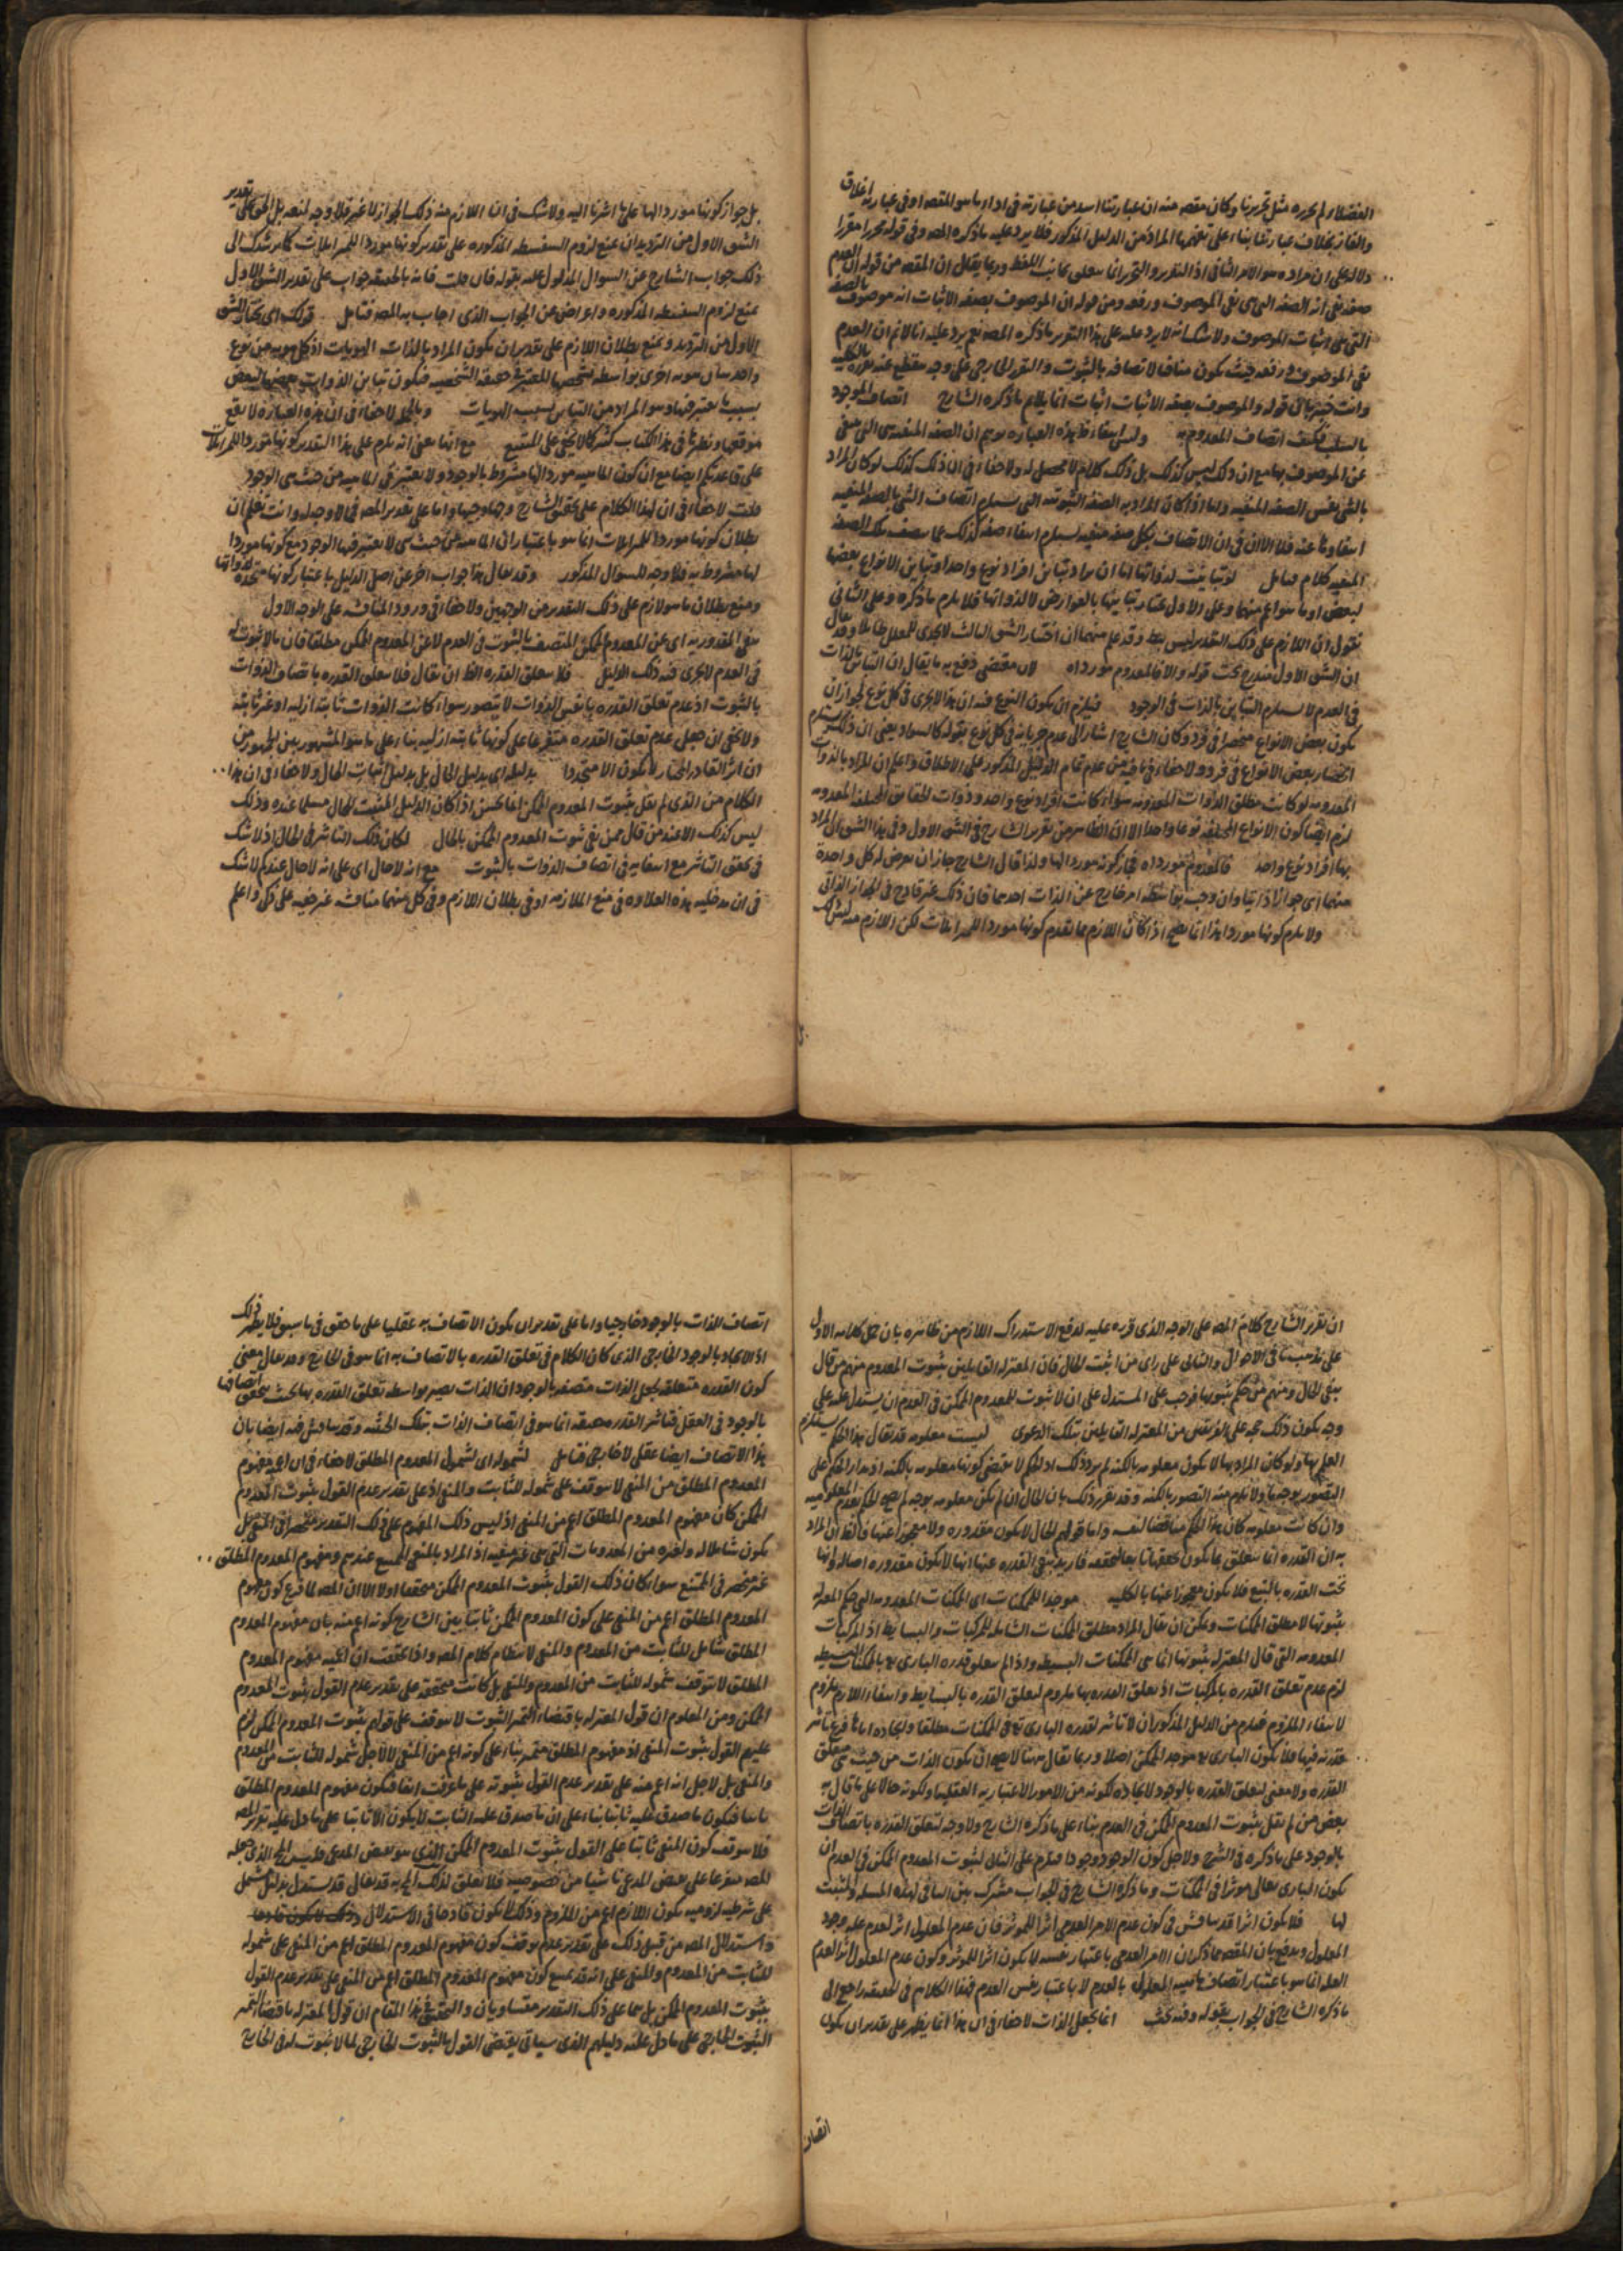 الفضلاء لم يحرره مثل تحريرنا وكان مقصده منه ان عبارتنا اسد من عبارته فى اداء ما هو المقصد او فى عبارته اغلاق
والغاز بخلاف عبارتنا بناء على تفهمها المراد من الدليل المذكور فلا يرد عليه ما ذكره المص وفى قوله تحررا مقررا
دلالة على ان مراده هو الامر الثانى اذ التقرير والتحرير انما يتعلق بجانب اللفظ وربما يقال ان المقصد من قوله ان العدم
صفة نفى انه الصفة التى هى نفى الموصوف ورفعه ومن قوله ان الموصوف بصفة الاثبات انه موصوف بالصفة
التى هى اثبات الموصوف ولا شك انه لا يرد عليه على هذا التقرير ما ذكره المص نعم يرد عليه انا لا نم ان العدم
نفى الموصوف ورفعه بحيث يكون منافيا لاتصافه بالثبوت والتقرر الخارجى على وجه ينقطع عنه بالكلية
وانت خبير بان قوله والموصوف بصفة الاثبات اثبات انما يلايم ما ذكره الشارح اتصاف الموجود
بالسلب فكيف اتصاف المعدوم به وليس انتفاء هذه العبارة يوهم ان الصفة المنفية هى التى تنفى
عن الموصوف بها مع ان ذلك ليس كذلك بل ذلك كلام لا محصل له ولا خفاء فى ان ذلك كذلك لو كان المراد
بالشئ نفس الصفة المنفية واما اذا كان المراد به الصفة الثبوتية التى يستلزم اتصاف الشئ بالصفة المنفية
انتفاءها عنه فلا الا ان فى ان الاتصاف بكل صفة منفية يستلزم انتفاء صفة كذلك عما يتصف بتلك الصفة
المنفية كلام فتامل لو تباينت لذواتها لنا ان يراد تباين افراد نوع واحد او تباين الانواع بعضها
لبعض او ما هو اعم منهما وعلى الاول نختار تباينها بالعوارض لا لذواتها فلا يلزم ما ذكره وعلى الثانى
نقول ان اللازم على ذلك التقدير ليس بط وقد علم منهما ان اختيار الشق الثالث لا يجدى للمعلل طائلا وقد يقال
ان الشق الاول مندرج تحت قوله والا فالمعدوم مورد اه لان مقتضى دفع به ما يقال ان التباين بالذات
فى العدم لا يستلزم التباين بالذات فى الوجود فيلزم ان يكون النوع فيه ان هذا لا يجرى فى كل نوع لجواز ان
يكون بعض الانواع منحصرا فى فرد وكان الشارح اشار الى عدم جريانه فى كل نوع بقوله كالسواد يعنى ان ذلك يستلزم
انحصار بعض الانواع فى فرد ولا خفاء فى ما فيه من عدم تمام الدليل المذكور على الاطلاق واعلم ان المراد بالذوات
المعدومة لو كانت مطلق الذوات المعدومة سواء كانت افراد نوع واحد وذوات الحقايق المختلفة المعدومة
لزم ايضا كون الانواع المختلفة نوعا واحدا الا ان الظاهر من تقرير الشارح فى الشق الاول وفى هذا الشق ان المراد
بها افراد نوع واحد فالمعدوم مورد اه فجاز كونه موردا لها ولذا قال الشارح جاز ان يعرض له كل واحدة
منهما اى جوازا ذاتيا وان وجب بواسطة امر خارج عن الذات احدهما فان ذلك غير قادح فى الجواز الذاتى
ولا يلزم كونها موردا هذا انما يصح اذا كان اللازم مما تقدم كونها موردا للمزايلات لكن اللازم منه ليس ذلك
بل جواز كونها موردا لها على ما اشرنا اليه ولا شك فى ان اللازم منه ذلك الجواز لا غير فلا وجه لمنعه بل الحق على تقدير
الشق الاول من الترديد ان يمنع لزوم السفسطة المذكورة على تقدير كونها موردا للمزايلات كما يرشدك الى
ذلك جواب الشارح عن السوال المدلول عليه بقوله فان قلت فانه بالحقيقة جواب على تقدير الشق الاول
بمنع لزوم السفسطة المذكورة واعراض عن الجواب الذى اجاب به المص فتامل قولك اى نختار الشق
الاول من الترديد ونمنع بطلان اللازم على تقدير ان يكون المراد بالذات الهويات اذ كل هوية من نوع
واحد يباين هوية اخرى بواسطة تشخصها المعتبر فى حقيقته الشخصية فيكون تباين الذوات بعضها لبعض
بسبب ما اعتبر فيها وهو المراد من التباين بسبب الهويات وبالجملة لا خفاء فى ان هذه العبارة لا تقع
موقعها ونظيرها فى هذا الكتاب كثير كما لا يخفى على المتتبع مع انها يعنى انه يلزم على هذا التقدير كونها موردا للمزايلات
على قاعدتكم ايضا مع ان كون الماهية موردا لها مشروط بالوجود ولا يعتبر فى الماهية من حيث هى الوجود
قلت لا خفاء فى ان لهذا الكلام على تحقيق الشارح وجها وجيها واما على تقدير المص فى لا وجه له وانت تعلم ان
بطلان كونها موردا للمزايلات انما هو باعتبار ان الماهية من حيث هى لا يعتبر فيها الوجود مع كونها موردا
لها مشروط به فلا وجه للسوال المذكور وقد يقال هذا جواب اخر عن اصل الدليل باعتبار كونها متحدة لذواتها
ومنع بطلان ما هو لازم على ذلك التقدير من الوجهين ولا خفاء فى ورود المناقشة على الوجه الاول
ينفى المقدورية اى عن المعدوم الممكن المتصف بالثبوت فى العدم لا عن المعدوم الممكن مطلقا فان ما لا ثبوت له
فى العدم لا يجرى فيه ذلك الدليل فلا يتعلق القدرة الظ ان يقال فلا يتعلق القدرة باتصاف الذوات
بالثبوت اذ عدم تعلق القدرة بانفس الذوات لا يتصور سواء كانت الذوات ثابتة ازلية او غير ثابتة
ولا يخفى ان جعل عدم تعلق القدرة متفرعا على كونها ثابتة ازلية بناء على ما هو المشهور بين الجمهور من
ان اثر القادر المختار لا يكون الا متجددا بدليله اى بدليل الحال بل بدليل اثبات الحال ولا خفاء فى ان هذا
الكلام من الذى لم يقل بثبوت المعدوم الممكن انما يحسن اذا كان الدليل المثبت للحال مسلما عنده وذلك
ليس كذلك الا عند من قال ممن نفى ثبوت المعدوم الممكن بالحال لكان ذلك التاثير فى الحال اذ لا شك
فى تحقق التاثير مع انتفائه فى اتصاف الذوات بالثبوت مع انه لا حال اى على انه لا حال عندكم لا شك
فى ان مدخلية هذه العلاوة فى منع الملازمة او فى بطلان اللازم وفى كل منهما مناقشة غير خفية على ذكى واعلم
ان تقرير الشارح كلام المص على الوجه الذى قرره عليه لدفع الاستدراك اللازم من ظاهره بان حمل كلامه الاول
على مذهب نافى الاحوال والثانى على راى من اثبت الحال فان المعتزلة القايلين بثبوت المعدوم منهم من قال
بنفى الحال ومنهم من حكم بثبوتها فوجب على المستدل على ان لا ثبوت للمعدوم الممكن فى العدم ان يستدل عليه على
وجه يكون ذلك حجة على الفريقين من المعتزلة القايلين بتلك الدعوى ليست معلومة قد يقال هذا الحكم يستلزم
العلم بها ولو كان المراد بها لا يكون معلومة بالكنه لم يرد ذلك اذ الحكم لا يقتضى كونها معلومة بالكنه اذ مدار الحكم على
التصور بوجه ما ولا يلزم منه التصور بالكنه وقد تقرر ذلك بان الحال ان لم يكن معلومة بوجه لم يصح الحكم بعدم المعلومية
وان كانت معلومة كان هذا الحكم مناقضا لنفسه واما قولهم الحال لا يكون مقدورة ولا معجوزا عنها فالظ ان المراد
به ان القدرة انما يتعلق بما يكون تحققها تابعا لتحققه فاريد بنفى القدرة عنها انها لا يكون مقدورة اصالة وانها
تحت القدرة بالتبع فلا يكون معجوزا عنها بالكلية موجدا للممكنات اى الممكنات المعدومة التى حكم المعتزلة
بثبوتها لا مطلق الممكنات ويمكن ان يقال المراد مطلق الممكنات الشاملة للمركبات والبسايط اذ المركبات
المعدومة التى قال المعتزلة بثبوتها انما هى الممكنات البسيطة واذا لم يتعلق قدرة البارى تع بالممكنات البسيطة
لزم عدم تعلق القدرة بالمركبات اذ تعلق القدرة بها ملزوم لتعلق القدرة بالبسايط وانتفاء اللازم ملزوم
لانتفاء الملزوم فيلزم من الدليل المذكور ان لا تاثير لقدرة البارى تع فى الممكنات مطلقا وايجاده اياها فرع تاثير
قدرته فيها فلا يكون البارى تع موجد الممكن اصلا وربما يقال منها لا يصح ان يكون الذات من حيث هى متعلق
القدرة ولا معنى لتعلق القدرة بالوجود لايجاده لكونه من الامور الاعتبارية العقلية او لكونه حالا على ما قال به
بعض من لم يقل بثبوت المعدوم الممكن فى العدم بناء على ما ذكره الشارح ولا وجه لتعلق القدرة باتصاف الذات
بالوجود على ما ذكره فى الشرح ولا جعل كون الوجود وجودا فيلزم على الثانى لثبوت المعدوم الممكن فى العدم ان
يكون البارى تعالى موثرا فى الممكنات وما ذكره الشارح فى الجواب مشترك بين النافى لهذه المسئلة والمثبت
لها فلا يكون اثرا قد يناقش فى كون عدم الامر العدمى اثرا للموثر فان عدم المعلول اثر لعدم علة وجود
المعلول ويدفع بان المقصد مما ذكر ان الامر العدمى باعتبار نفسه لا يكون اثرا للموثر وكون عدم المعلول اثر العدم
العلة انما هو باعتبار اتصاف ماهية المعلول بالعدم لا باعتبار نفس العدم فهذا الكلام فى الحقيقة راجع الى
ما ذكره الشارح فى الجواب بقوله وفيه بحث انما يجعل الذات لا خفاء فى ان هذا انما يظهر على تقدير ان يكون
اتصاف
اتصاف الذات بالوجود خارجيا واما على تقدير ان يكون الاتصاف به عقليا على ما حقق فى ما سبق فلا يظهر ذلك
اذ الايجاد بالوجود الخارجى الذى كان الكلام فى تعلق القدرة بالاتصاف به انما هو فى الخارج وقد يقال معنى
كون القدرة متعلقة بجعل الذات متصفة بالوجود ان الذات يصير بواسطة تعلق القدرة بها بحيث يتحقق اتصافها
بالوجود فى العقل فتاثير القدرة حقيقة انما هو فى اتصاف الذات بتلك الحيثية وقد يناقش فيه ايضا بان
هذا الاتصاف ايضا عقلى لا خارجى فتامل لشموله اى لشمول المعدوم المطلق لا خفاء فى ان اعمية مفهوم
المعدوم المطلق من المنفى لا يتوقف على شموله للثابت والمنفى اذ على تقدير عدم القول بثبوت المعدوم
الممكن كان مفهوم المعدوم المطلق اعم من المنفى اذ ليس ذلك المفهوم على ذلك التقدير منحصرا فى المنفى بل
يكون شاملا له ولغيره من المعدومات التى هى غير منفية اذ المراد بالمنفى الممتنع عندهم ومفهوم المعدوم المطلق
غير منحصر فى الممتنع سواء كان ذلك القول بثبوت المعدوم الممكن متحققا او لا الا ان المص لما فرع كون مفهوم
المعدوم المطلق اعم من المنفى على كون المعدوم الممكن ثابتا بين الشارح كونه اعم منه بان مفهوم المعدوم
المطلق شامل للثابت من المعدوم والمنفى لانتظام كلام المص واذا تحققت ان اعمية مفهوم المعدوم
المطلق لا يتوقف شموله للثابت من المعدوم والمنفى بل كانت متحققة على تقدير عدم القول بثبوت المعدوم
الممكن ومن المعلوم ان قول المعتزلة باقتضاء التميز الثبوت لا يتوقف على قولهم بثبوت المعدوم الممكن لزم
عليهم القول بثبوت المنفى اذ مفهوم المطلق متميز بناء على كونه اعم من المنفى لا لاجل شموله للثابت من المعدوم
والمنفى بل لاجل انه اعم منه على تقدير عدم القول بثبوته على ما عرفت انفا فيكون مفهوم المعدوم المطلق
ثابتا فيكون ما صدق عليه ثابتا بناء على ان ما صدق عليه الثابت لا يكون الا ثابتا على ما دل عليه تقرير المص
فلا يتوقف كون المنفى ثابتا على القول بثبوت المعدوم الممكن الذى هو بعض المدعى الذى جعله
المص متفرعا على بعض المدعى ناشيا من خصوصيته فلا تعلق لذلك به قد يقال قد يستدل بدليل يشتمل
على شرطية لزومية يكون اللازم اعم من الملزوم وذلك لا يكون قادحا فى الاستدلال
واستدلال المص من قبيل ذلك على تقدير عدم توقف كون مفهوم المعدوم المطلق اعم من المنفى على شموله
للثابت من المعدوم والمنفى على انه قد يمنع كون مفهوم المعدوم المطلق اعم من المنفى على تقدير عدم القول
بثبوت المعدوم الممكن بل هما على ذلك التقدير متساويان والتحقيق فى هذا المقام ان قول المعتزلة باقتضاء التميز
الثبوت الخارجى على ما دل عليه دليلهم الذى سياتى يقتضى القول بالثبوت الخارجى لما لا ثبوت له فى الخارج